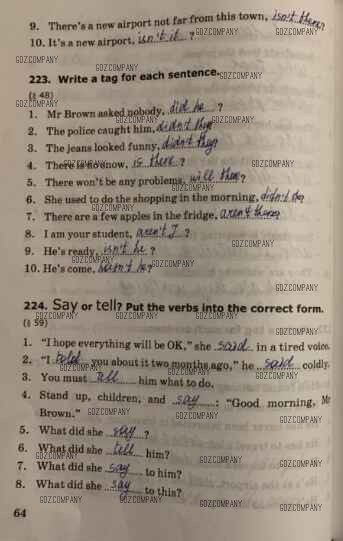 9. There's a new airport not far from this town, isn't there?
10. It's a new airport, isn't it ?
GDZCOMPANY GDZCOMPANY GDZCOMPANY
223. Write a tag for each sentence.
GDZCOMPANY
(§ 48)
GDZCOMPANY
1. Mr Brown asked nobody, did he ?
GDZCOMPANY GDZCOMPANY
2. The police caught him, didn't they?
3. The jeans looked funny, didn't they?
4. There is no snow, is there ?
GDZCOMPANY GDZCOMPANY
5. There won't be any problems, will there?
GDZCOMPANY
6. She used to do the shopping in the morning, didn't she?
GDZCOMPANY
7. There are a few apples in the fridge, aren't there?
8. I am your student, aren't I ?
GDZCOMPANY
9. He's ready, isn't he ?
GDZCOMPANY GDZCOMPANY
10. He's come, hasn't he?
224. Say or tell? Put the verbs into the correct form.
(§ 59)
GDZCOMPANY GDZCOMPANY GDZCOMPANY GDZCOMPANY
1. "I hope everything will be OK," she said in a tired voice.
GDZCOMPANY
2. "I told you about it two months ago," he said coldly.
GDZCOMPANY GDZCOMPANY
3. You must tell him what to do.
GDZCOMPANY
4. Stand up, children, and say : "Good morning, Mr
Brown."
GDZCOMPANY GDZCOMPANY GDZCOMPANY
5. What did she say ?
GDZCOMPANY
6. What did she tell him?
GDZCOMPANY GDZCOMPANY GDZCOMPANY
7. What did she say to him?
GDZCOMPANY
8. What did she say to this?
GDZCOMPANY GDZCOMPANY GDZCOMPANY
64